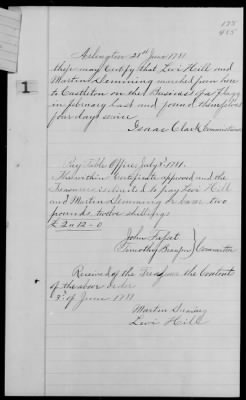 155
455
Arlington 21st June 1781
these may Certify that Levi Hill and
Martin Demming marched from here
to Castleton on the Business of a Flagg
in february last and found themselves
four days each
Isaac Clark Commissioner
1
Pay Table Office July 3d 1781.
The within Certificate approved and the
Treasurer is directed to pay Levi Hill
and Martin Demming or bearer two
pounds twelve shillings
£2=12-0
John Fasset
Timothy Brownson } Committee
Received of the Treasurer the Contents
of the above Order
3d of June 1781
Martin Deming
Levi Hill